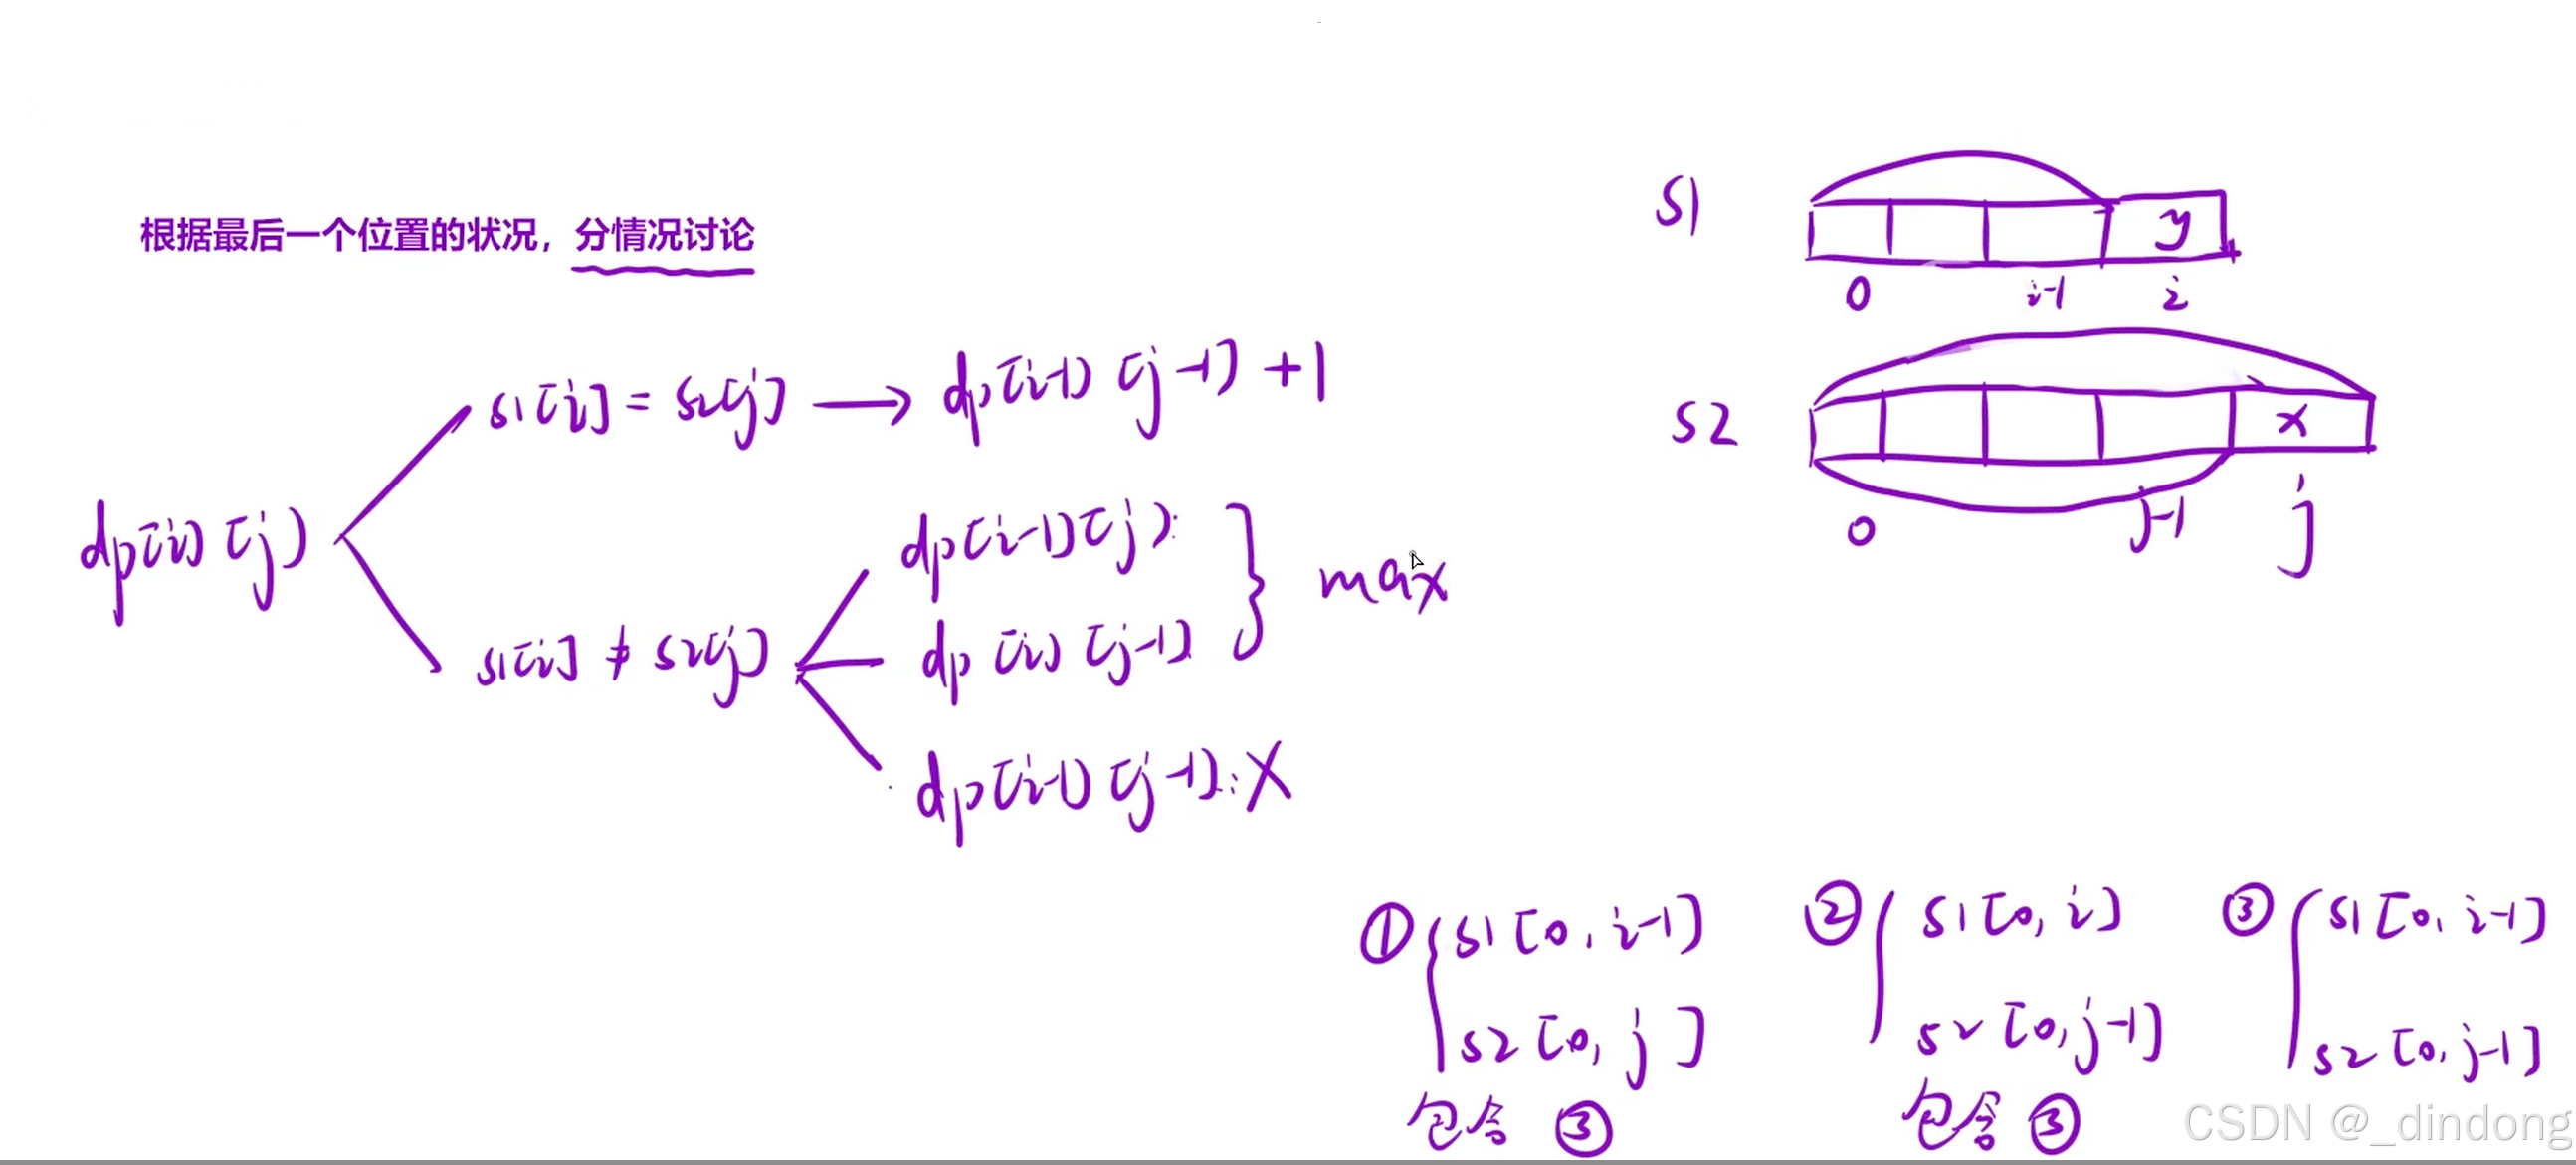 根据最后一个位置的状况，分情况讨论
dp[i][j]
s1[i] = s2[j] → dp[i-1][j-1] + 1
s1[i] ≠ s2[j]
dp[i-1][j]:
dp[i][j-1]
} max
dp[i-1][j-1]: X
S1
y
0 i-1 i
S2
x
0 j-1 j
① { s1[0, i-1]
s2[0, j]
包含 ③
② { s1[0, i]
s2[0, j-1]
包含 ③
③ { s1[0, i-1]
s2[0, j-1]
CSDN @_dindong